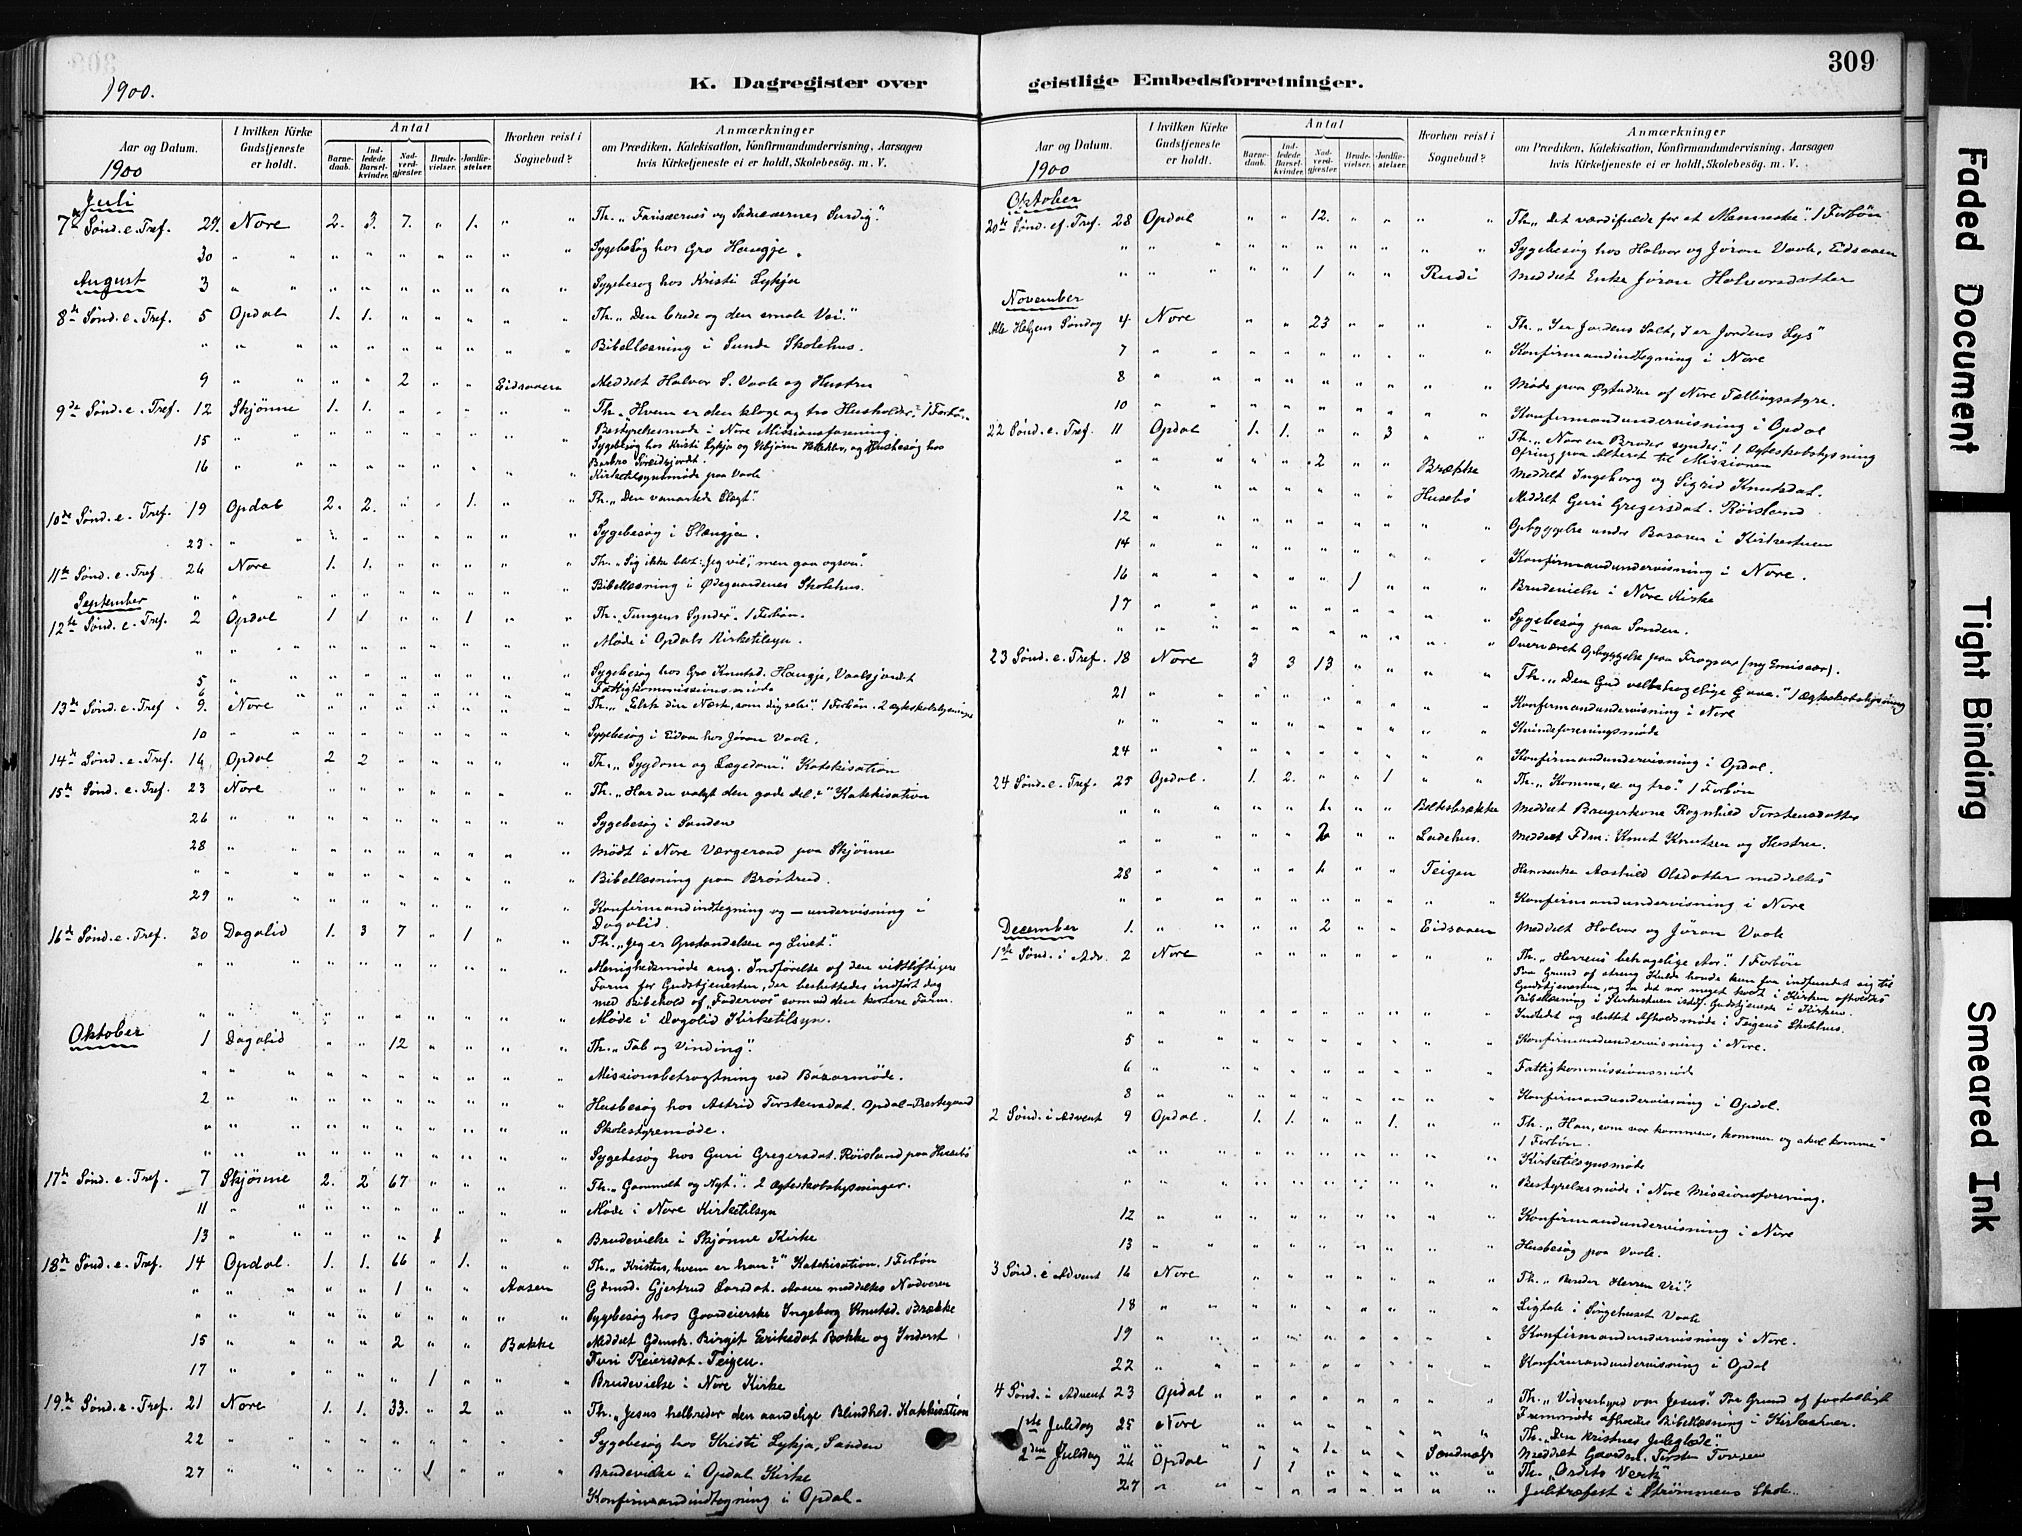 309
1900.
K. Dagregister over
Aar og Datum.
I hvilken Kirke Gudstjeneste er holdt.
Antal
Barnedaab.
Indledede Barselkvinder.
Nadverdgjæster.
Brudevielser.
Jordfæstelser.
Hvorhen reist i Sognebud?
Anmærkninger
om Prædiken, Katekisation, Konfirmandundervisning, Aarsagen
hvis Kirketjeneste ei er holdt, Skolebesøg. m. V.
1900
Juli
7de Sønd. e. Tref. 29. Nore 2. 3. 7. " 1. " " Th. "Farisæernes og Saducæernes Surdeig."
30 " " " " " " " " " Sygebesøg hos Gro Haugje.
August
3 " " " " " " " " " Sygebesøg hos Kristi Lykja
8de Sønd. e. Tref. 5 Opdal 1. 1. " " " " " Th. "Den brede og den smale Vei."
" " " " " " " " " " Bibellæsning i Sunde Skolehus.
9 " " " " 2 " " Eidsaaen Meddelt Halvor S. Vaale og Hustru
9de Sønd. e. Tref. 12 Skjønne 1. 1. " " " " " Th. "Hvem er den kloge og tro Husholder?" 1 Forbøn.
Bestyrelsesmøde i Nore Missionsforening.
15 " " " " " " " " " Sygebesøg hos Kristi Lykja og og Husbesøg hos
16 " " " " " " " " " Kirketilsynsmøde paa Vaale
10de Sønd. e. Tref. 19 Opdal 2. 2. " " 1. " " Th. "Den vanartede Slægt".
23. " " " " " " " " " Sygebesøg i Slængja.
11te Sønd. e. Tref. 26 Nore 1. 1. " " " " " Th. "Sig ikke blot: Jeg vil; men gaa ogsaa".
" " " " " " " " " " Bibellæsning i Ødegaardenes Skolehus.
September
12te Sønd. e. Tref. 2 Opdal 1 1 " " 1 " " Th. "Tungens Synder". 1 Forbøn.
" " " " " " " " " " Møde i Opdals Kirketilsyn.
5 " " " " " " " " " Sygebesøg hos Gro Knutsd. Haugje, Vaalsjordet
6 " " " " " " " " " Fattigkommissionsmøde
13de Sønd. e. Tref. 9. Nore " " " " " " " Th. "Elsk din Næste, som dig selv." 1 Forbøn. 2 Ægteskabslysninger
10 " " " " " " " " " Sygebesøg i Eidaa hos Jøran Vaale.
14de Sønd. e. Tref. 16 Opdal 2 2 " " " " " Th. "Sygdom og Lægedom". Katekisation
15de Sønd. e. Tref. 23 Nore " " " " " " " Th. "Har du valgt den gode Del?" Katekisation
26 " " " " " " " " " Sygebesøg i Sanden
28 " " " " " " " " " Mødt i Nore Værgeraad paa Skjønne
" " " " " " " " " " Bibellæsning paa Brøstrud.
29 " " " " " " " " " Konfirmandindtegning og -undervisning i
Dagalid.
16de Sønd. e. Tref. 30 Dagalid 1. 3 7 " 1 " " Th. "Jeg er Opstandelsen og Livet".
" " " " " " " " " " Menighedsmøde ang. Indførelse af den vidtløftigere
Form for Gudstjenesten, der besluttedes indført dog
med Bibehold af "Fadervor" som ved den kortere Form.
" " " " " " " " " " Møde i Dagalid Kirketilsyn.
Oktober
1 Dagalid " " 12 " " " " Th. "Tab og Vinding."
" " " " " " " " " " Missionsbetragtning ved Bazarmøde.
2 " " " " " " " " " Husbesøg hos Astrid Torstensdat. Opdal-Prestegaard
" " " " " " " " " " Skolestyremøde.
" " " " " " " " " " Sygebesøg hos Guri Gregersdat. Røisland paa Husebø
17de Sønd. e. Tref. 7 Skjønne 2. 2 67 " " " " Th. "Gammelt og Nyt". 2 Ægteskabslysninger.
11 " " " " " " " " " Møde i Nore Kirketilsyn
13 " " " " " 1 " " " Brudevielse i Skjønne Kirke
18de Sønd. e. Tref. 14 Opdal. 1. 1. 66 " 1. " " Th. "Kristus, hvem er han?" Katekisation. 1 Forbøn
" " " " " 1 " " Aasen Gdmsd. Gjertrud Larsdat. Aasen meddeltes Nadveren
" " " " " " " " " " Sygebesøg hos Gaardeierske Ingeborg Knutsd. Brække
15 " " " " 2 " " Bakke Meddelt Gdmsk. Birgit Eriksdat Bakke og Inderst
Turi Reiersdat. Teigen.
17 " " " " " 1 " " " Brudevielse i Nore Kirke
19de Sønd. e. Tref. 21 Nore 1. 1. 33. " 2 " " Th. "Jesus helbreder den aandelige Blindhed. Katekisation
22 " " " " " " " " " Sygebesøg hos Kristi Lykja, Sanden
27 " " " " " 1 " " " Brudevielse i Opdal Kirke
Konfirmandindtegning i Opdal.
geistlige Embedsforretninger.
Aar og Datum.
I hvilken Kirke Gudstjeneste er holdt.
Antal
Barnedaab.
Indledede Barselkvinder.
Nadverdgjæster.
Brudevielser.
Jordfæstelser.
Hvorhen reist i Sognebud?
Anmærkninger
om Prædiken, Katekisation, Konfirmandundervisning, Aarsagen
hvis Kirketjeneste ei er holdt, Skolebesøg. m. V.
1900
Oktober
20de Sønd. ef. Tref. 28 Opdal " " 12. " " " " Th. "Det værdifulde for et Menneske". 1 Forbøn
" " " " " " " " " " Sygebesøg hos Halvor og Jøran Vaale, Eidsaaen
" " " " " 1 " " Rudi Meddelt Enke Jøran Halvorsdatter
November
Alle Helgens Søndag 4 Nore " " 23 " " " " Th. "I er Jordens Salt, I er Jordens Lys"
7 " " " " " " " " " Konfirmandindtegning i Nore
8 " " " " " " " " " Møde paa af Nore Tællingsstyre.
10 " " " " " " " " " Konfirmandundervisning i Opdal
22 Sønd. e. Tref. 11 Opdal 1. 1. " " 3 " " Th. "Naar en Broder synder." 1 Ægteskabslysning
Ofring paa Alteret til Missionen
" " " " 2 " " Brække Meddelt Ingeborg og Sigrid Knutsdat.
" " " " " " " Husebø Meddelt Guri Gregersdat. Røisland
12 " " " " " " " " " Opbyggelse under Basaren i Kirkestuen
14 " " " " " " " " " Konfirmandundervisning i Nore.
16 " " " " " 1 " " " Brudevielse i Nore Kirke
17 " " " " " " " " " Sygebesøg paa Sanden.
" " " " " " " " " " Overværet Opbyggelse paa (ny Emissær).
23 Sønd. e. Tref. 18 Nore 3 3 13 " " " " Th. "Den Gud velbehagelige Gave." 1 Ægteskabslysning
21 " " " " " " " " " Konfirmandundervisning i Nore
" " " " " " " " " " Kvindeforeningsmøde
24 " " " " " " " " " Konfirmandundervisning i Opdal.
24 Sønd. e. Tref. 25 Opdal. 1. 2. " " 1 " " Th. "Komme, se og tro." 1 Forbøn
" " " " 1. " " Meddelt Brugerkone Ragnhild Torstensdatter
" " " " 2 " " Ladehus. Meddelt Fdm. Knut Knutsen og Hustru.
28 " " " " 1 " " Teigen Aashild Olsdatter meddeltes
" " " " " " " " " " Konfirmandundervisning i Nore
December
1. " " " " 2 " " Eidsaaen Meddelt Halvor og Jøran Vaale
1ste Sønd. i Adv. 2 Nore " " " " " " " Th. "Herrens behagelige Aar". 1 Forbøn
Paa Grund af streng Kulde havde kun faa indfundet sig til
Gudstjenesten, og da det var meget koldt i Kirken afholdtes
Bibellæsning i Kirkestuen istdf. Gudstjeneste i Kirken
" " " " " " " " " " Indledet og sluttet Afholdsmøde i Teigens Skolhus.
5 " " " " " " " " " Konfirmandundervisning i Nore.
6 " " " " " " " " " Fattigkommissionsmøde
8 " " " " " " " " " Konfirmandundervisning i Opdal.
2 Sønd. i Advent 9 Opdal. 1. 1. " " 1. " " Th. "Han, som var kommen, kommer og skal komme"
1 Forbøn.
" " " " " " " " " " Kirketilsynsmøde
" " " " " " " " " " Bestyrelsesmøde i Nore Missionsforening.
12 " " " " " " " " " Konfirmandundervisning i Nore
13 " " " " " " " " " Husbesøg paa Vaale.
3 Sønd. i Advent 16 Nore " " " " " " " Th. "Bereder Herrens Vei".
18 " " " " " " " " " Ligtale i Sørgehuset Vaale
19 " " " " " " " " " Konfirmandundervisning i Nore.
22 " " " " " " " " " Konfirmandundervisning i Opdal
4 Sønd. i Advent 23 Opdal " " " " " " " " Th. "Vidnesbyrd om Jesus". Paa Grund af faatalligt
Fremmøde afholdes Bibellæsning i Kirkestuen.
1ste Juledag 25 Nore " " " " " " " Th. "Den kristnes Juleglæde".
" " " " 1. " " Meddelt Torsten
2den Juledag 26 Opdal 1 1 " " " " " Th. "Ordets Verk"
27 " " " " " " " " " Juletræfest i Strømmens Skole.
Faded Document
Tight Binding
Smeared Ink